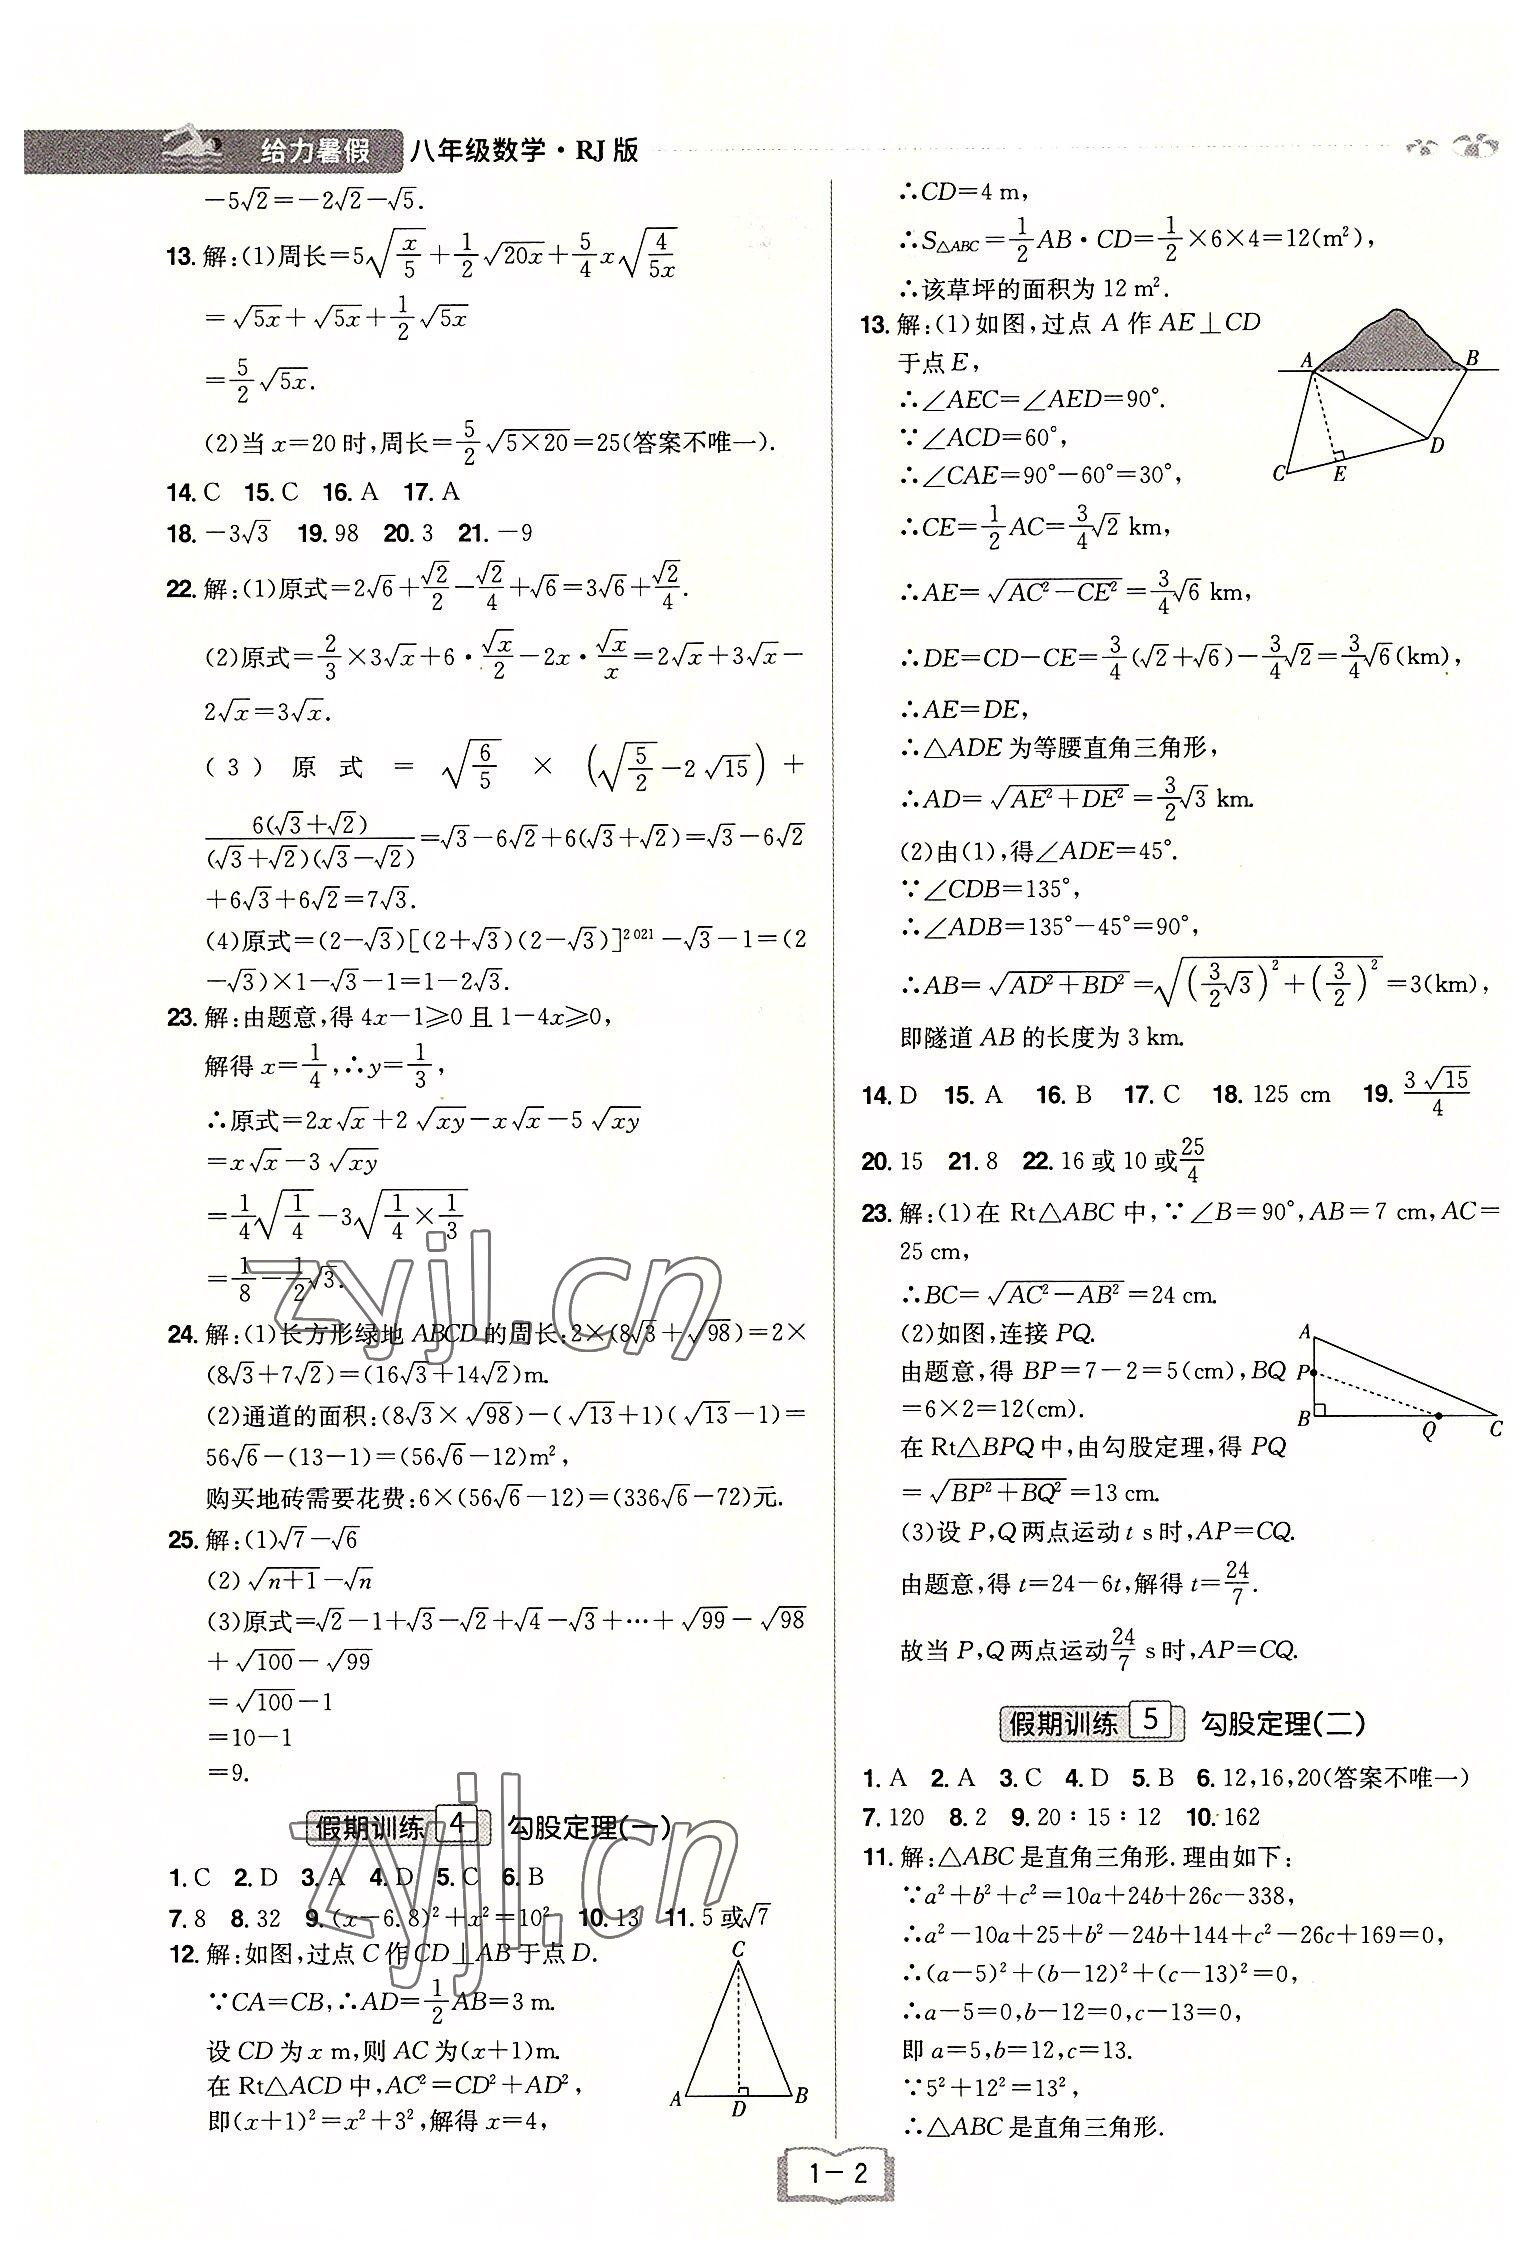 给力暑假 八年级数学·RJ版
-5√2=-2√2-√5.
13.解:(1)周长=5√(x/5)+1/2√(20x)+5/4x√(4/5x)
=√(5x)+√(5x)+1/2√(5x)
=5/2√(5x).
(2)当x=20时,周长=5/2√(5×20)=25(答案不唯一).
14.C 15.C 16.A 17.A
18.-3√3 19.98 20.3 21.-9
22.解:(1)原式=2√6+√2/2-√2/4+√6=3√6+√2/4.
(2)原式=2/3×3√x+6·√x/2-2x·√x/x=2√x+3√x-
2√x=3√x.
(3)原式=√(6/5)×(√(5/2)-2√15)+
6(√3+√2)/((√3+√2)(√3-√2))=√3-6√2+6(√3+√2)=√3-6√2
+6√3+6√2=7√3.
(4)原式=(2-√3)[(2+√3)(2-√3)]²⁰²¹-√3-1=(2
-√3)×1-√3-1=1-2√3.
23.解:由题意,得4x-1⩾0且1-4x⩾0,
解得x=1/4,∴y=1/3,
∴原式=2x√x+2√(xy)-x√x-5√(xy)
=x√x-3√(xy)
=1/4√(1/4)-3√(1/4×1/3)
=1/8-1/2√3.
24.解:(1)长方形绿地ABCD的周长:2×(8√3+√98)=2×
(8√3+7√2)=(16√3+14√2)m.
(2)通道的面积:(8√3×√98)-(√13+1)(√13-1)=
56√6-(13-1)=(56√6-12)m²,
购买地砖需要花费:6×(56√6-12)=(336√6-72)元.
25.解:(1)√7-√6
(2)√(n+1)-√n
(3)原式=√2-1+√3-√2+√4-√3+…+√99-√98
+√100-√99
=√100-1
=10-1
=9.
假期训练 4 勾股定理(一)
1.C 2.D 3.A 4.D 5.C 6.B
7.8 8.32 9.(x-6.8)²+x²=10² 10.13 11.5或√7
12.解:如图,过点C作CD⊥AB于点D.
∵CA=CB,∴AD=1/2AB=3 m.
设CD为x m,则AC为(x+1)m.
在Rt△ACD中,AC²=CD²+AD²,
即(x+1)²=x²+3²,解得x=4,
C
A D B
∴CD=4 m,
∴S△ABC=1/2AB·CD=1/2×6×4=12(m²),
∴该草坪的面积为12 m².
13.解:(1)如图,过点A作AE⊥CD
于点E,
∴∠AEC=∠AED=90°.
∵∠ACD=60°,
∴∠CAE=90°-60°=30°,
∴CE=1/2AC=3/4√2 km,
∴AE=√(AC²-CE²)=3/4√6 km,
∴DE=CD-CE=3/4(√2+√6)-3/4√2=3/4√6(km),
∴AE=DE,
∴△ADE为等腰直角三角形,
∴AD=√(AE²+DE²)=3/2√3 km.
(2)由(1),得∠ADE=45°.
∵∠CDB=135°,
∴∠ADB=135°-45°=90°,
∴AB=√(AD²+BD²)=√((3/2√3)²+(3/2)²)=3(km),
即隧道AB的长度为3 km.
A B
C E D
14.D 15.A 16.B 17.C 18.125 cm 19.3√15/4
20.15 21.8 22.16或10或25/4
23.解:(1)在Rt△ABC中,∵∠B=90°,AB=7 cm,AC=
25 cm,
∴BC=√(AC²-AB²)=24 cm.
(2)如图,连接PQ.
由题意,得BP=7-2=5(cm),BQ
=6×2=12(cm).
在Rt△BPQ中,由勾股定理,得PQ
=√(BP²+BQ²)=13 cm.
(3)设P,Q两点运动t s时,AP=CQ.
由题意,得t=24-6t,解得t=24/7.
故当P,Q两点运动24/7 s时,AP=CQ.
A
P
B Q C
假期训练 5 勾股定理(二)
1.A 2.A 3.C 4.D 5.B 6.12,16,20(答案不唯一)
7.120 8.2 9.20∶15∶12 10.162
11.解:△ABC是直角三角形.理由如下:
∵a²+b²+c²=10a+24b+26c-338,
∴a²-10a+25+b²-24b+144+c²-26c+169=0,
∴(a-5)²+(b-12)²+(c-13)²=0,
∴a-5=0,b-12=0,c-13=0,
即a=5,b=12,c=13.
∵5²+12²=13²,
∴△ABC是直角三角形.
1-2
zyjl.cn
zyjl.cn